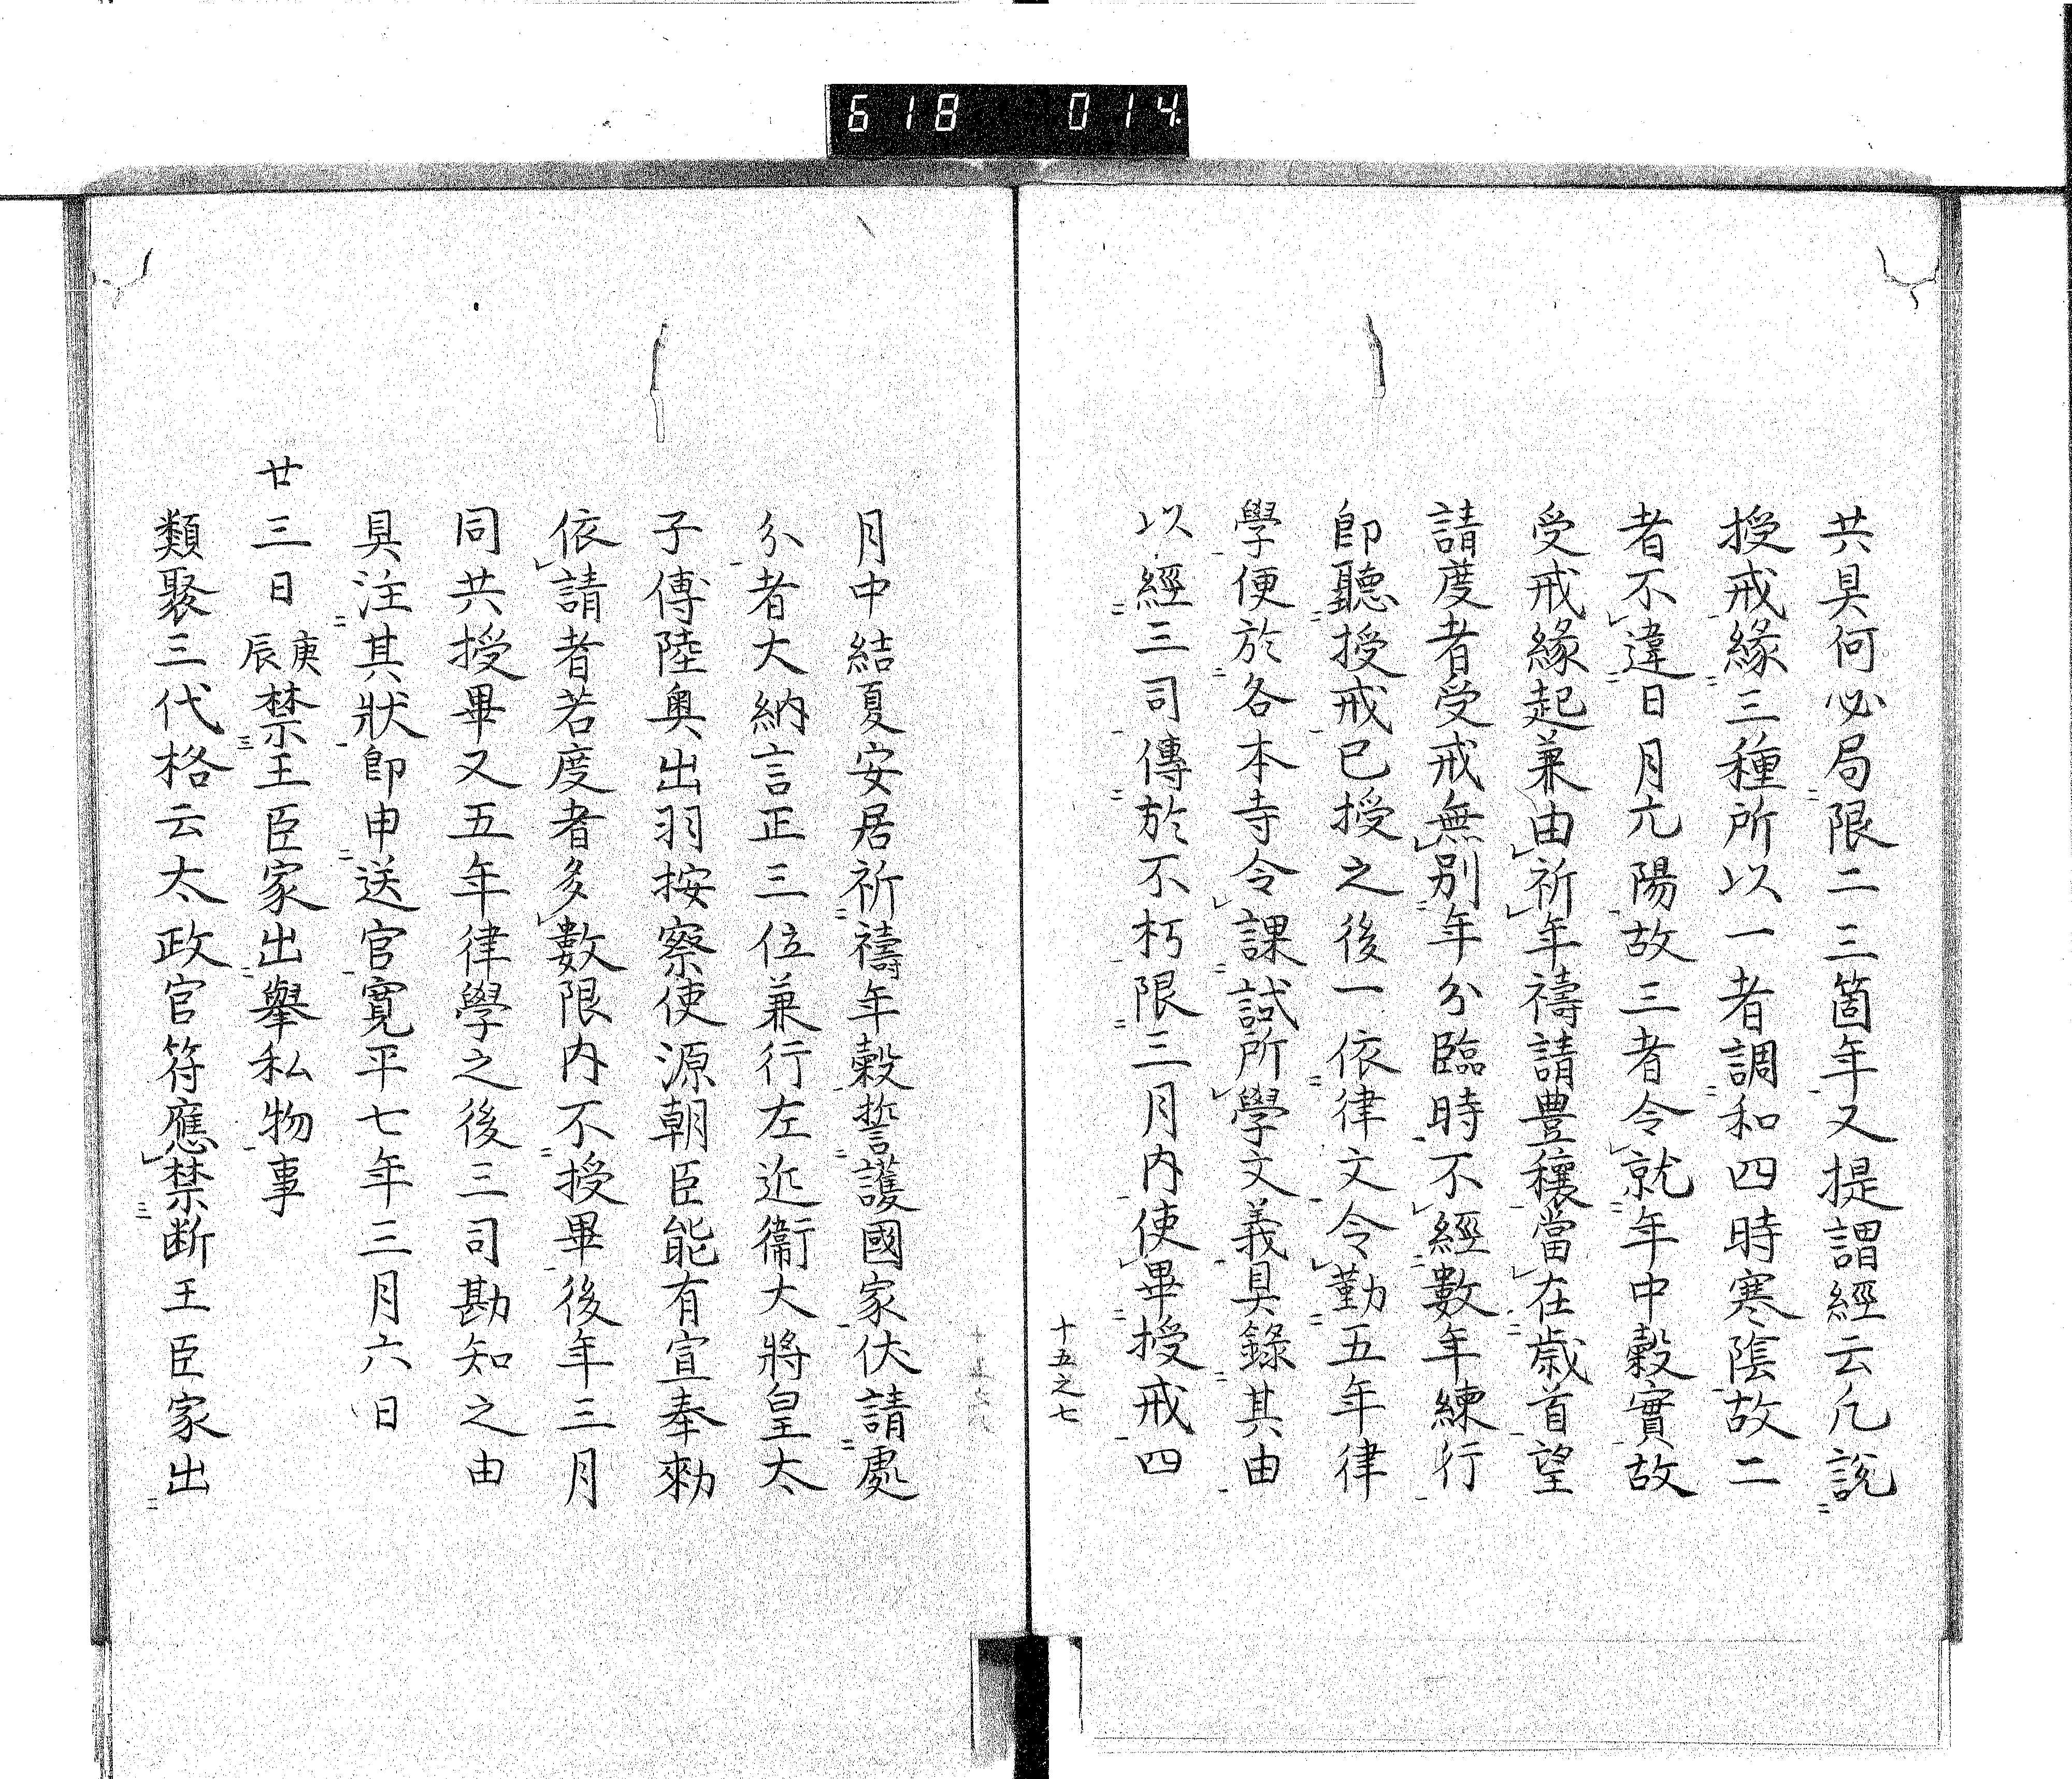 618 014.
共具何必局限二三箇年又提謂經云凢說
授戒緣三種所以一者調和四時寒隂故二
者不違日月亢陽故三者令就年中穀實故
受戒緣起兼由祈年禱請豊穰當在歳首望
請度者受戒無別年分臨時不經數年練行
即聽授戒已授之後一依律文令勤五年律
學便於各本寺令課試所學文義具錄其由
以經三司傳於不朽限三月内使畢授戒四
十五之七
月中結夏安居祈禱年穀誓護國家伏請處
分者大納言正三位兼行左近衞大將皇太
子傅陸奥出羽按察使源朝臣能有宣奉勅
依請者若度者多數限内不授畢後年三月
同共授畢又五年律學之後三司勘知之由
具注其狀即申送官寛平七年三月六日
廿三日庚辰禁王臣家出擧私物事
類聚三代格云太政官符應禁断王臣家出